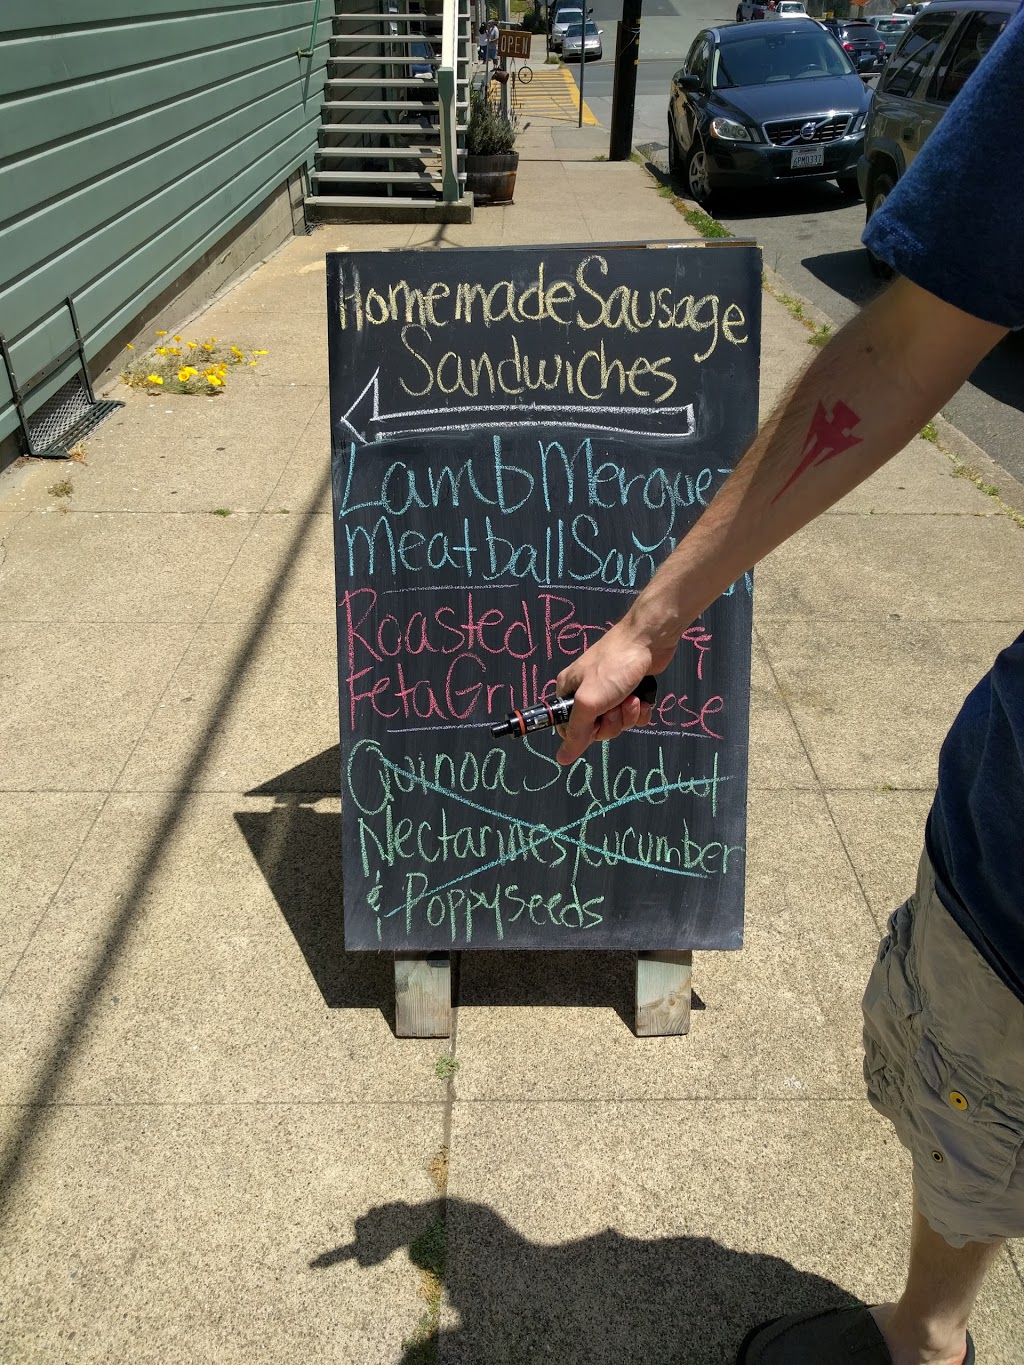 OPEN
6PMD337
Homemade Sausage
Sandwiches
Lamb Merguez
Meatball San
Roasted Pep &
Feta Grille eese
Quinoa Salad w/
Nectarines, Cucumber
& Poppyseeds